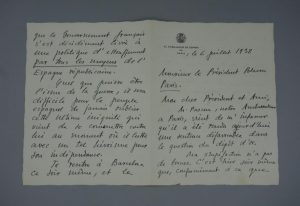 que le Gouvernement français
s'est décidément livré à
une politique d'étouffement
par tous les moyens de l'
Espagne républicaine.
Quel que puisse être
l'issue de la guerre, il sera
difficile pour le peuple
espagnol de jamais oublier
cette ultime iniquité qui
vient de se commettre contre
lui au moment où il lutte
avec un tel héroïsme pour
son indépendance.
Je rentre à Barcelone
ce soir même, et la
EL EMBAJADOR DE ESPAÑA
PARIS, le 6 juillet 1938
Monsieur le Président Blum
Paris.
Mon cher Président et Ami,
M. Pascua, notre Ambassadeur
à Paris, vient de m'informer
qu'il a été rendu aujourd'hui
une sentence défavorable dans
la question du dépôt d'or.
Ma stupéfaction n'a pas
de borne. C'est hier soir même
que, conformément à ce que